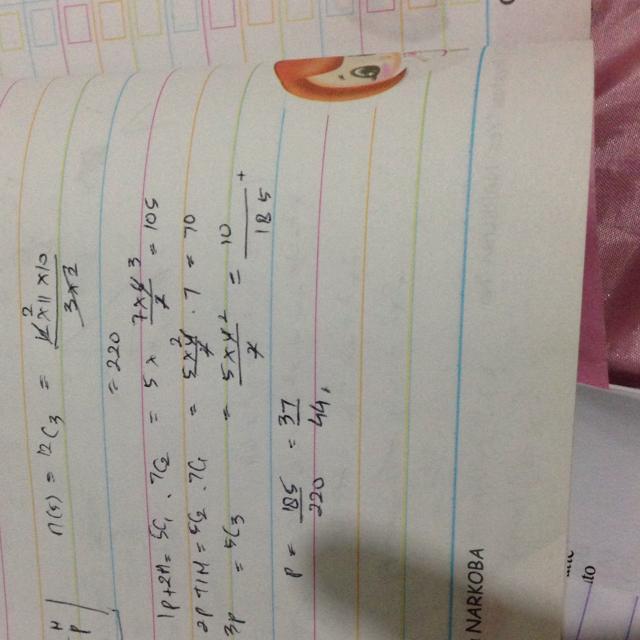 H
P
n(s) = 12C3 = 12 × 11 × 10 / 3 × 2
= 220
1P + 2H = 5C1 . 7C2 = 5 × 7 × 6 3 / 2 = 105
2P + 1H = 5C2 . 7C1 = 5 × 4 2 / 2 . 7 = 70
3P = 5C3 = 5 × 4 2 / 2 = 10
+
185
P = 185 / 220 = 37 / 44
NARKOBA